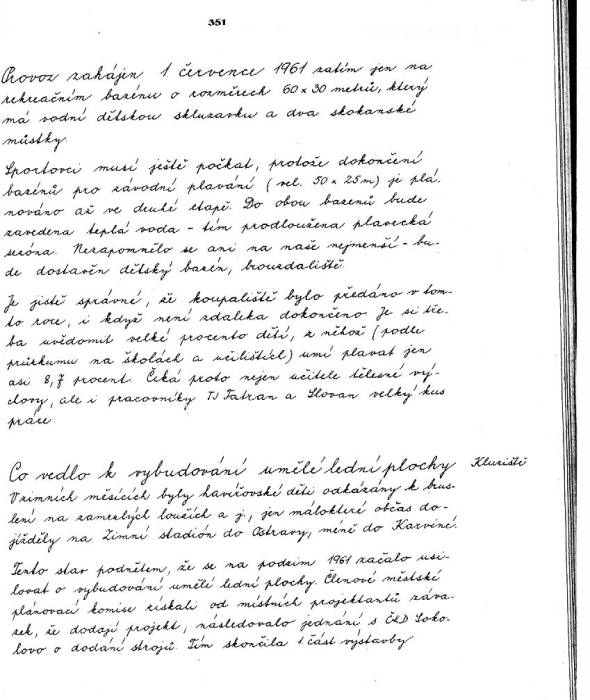 351
Provoz zahájen 1 července 1961 zatím jen na
rekreačním bazénu o rozměrech 60 x 30 metrů, který
má vodní dětskou skluzavku a dva skokanské
můstky.
Sportovci musí ještě počkat, protože dokončení
bazénů pro závodní plavání (vel. 50 x 25 m) je plá-
nováno až ve druhé etapě. Do obou bazenů bude
zavedena teplá voda - tím prodloužena plavecká
sezóna. Nezapomnělo se ani na naše nejmenší - bu-
de dostavěn dětský bazén, brouzdaliště.
Je jistě správné, že koupaliště bylo předáno v tom-
to roce, i když není zdaleka dokončeno. Je si tře-
ba uvědomit velké procento dětí, z něhož (podle
průzkumu na školách a učilištích) umí plavat jen
asi 8,7 procent. Čeká proto nejen učitele tělesné vý-
chovy, ale i pracovníky TJ Tatran a Slovan velký kus
práce.
Co vedlo k vybudování umělé lední plochy
Kluziště
V zimních měsících byly havířovské děti odkázány k brus-
lení na zamrzlých loužích a j., jen málokteré občas do-
jížděly na Zimní stadión do Ostravy, méně do Karviné.
Tento stav podnětem, že se na podzim 1961 začalo usi-
lovat o vybudování umělé lední plochy. Členové městské
plánovací komise získali od místních projektantů záva-
zek, že dodají projekt, následovalo jednání s ČKD Soko-
lovo o dodání strojů. Tím skončila 1 část výstavby